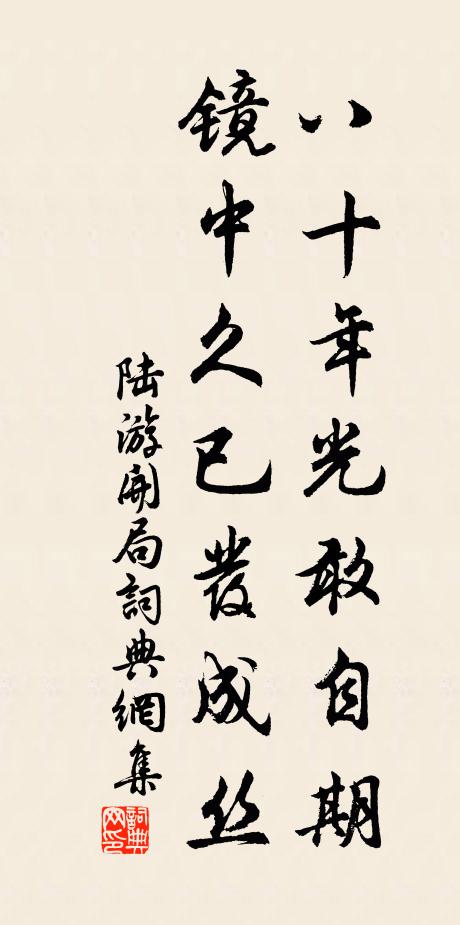 八十年光敢自期
镜中久已发成丝
陆游開局詞典網集
詞典網印